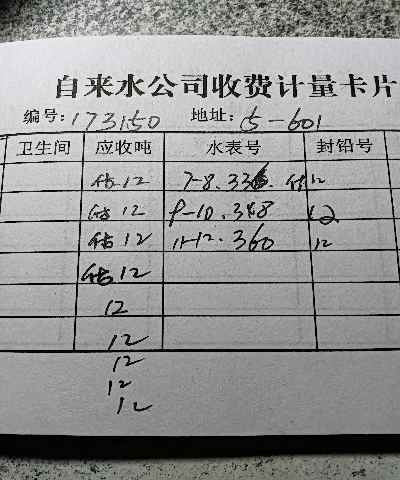 自来水公司收费计量卡片
编号: 173150 地址: 5-601
卫生间 应收吨 水表号 封铅号
估12 7-8. 336. 估12
估12 9-10. 348 12
估12 11-12. 360 12
估12
12
12
12
12
12